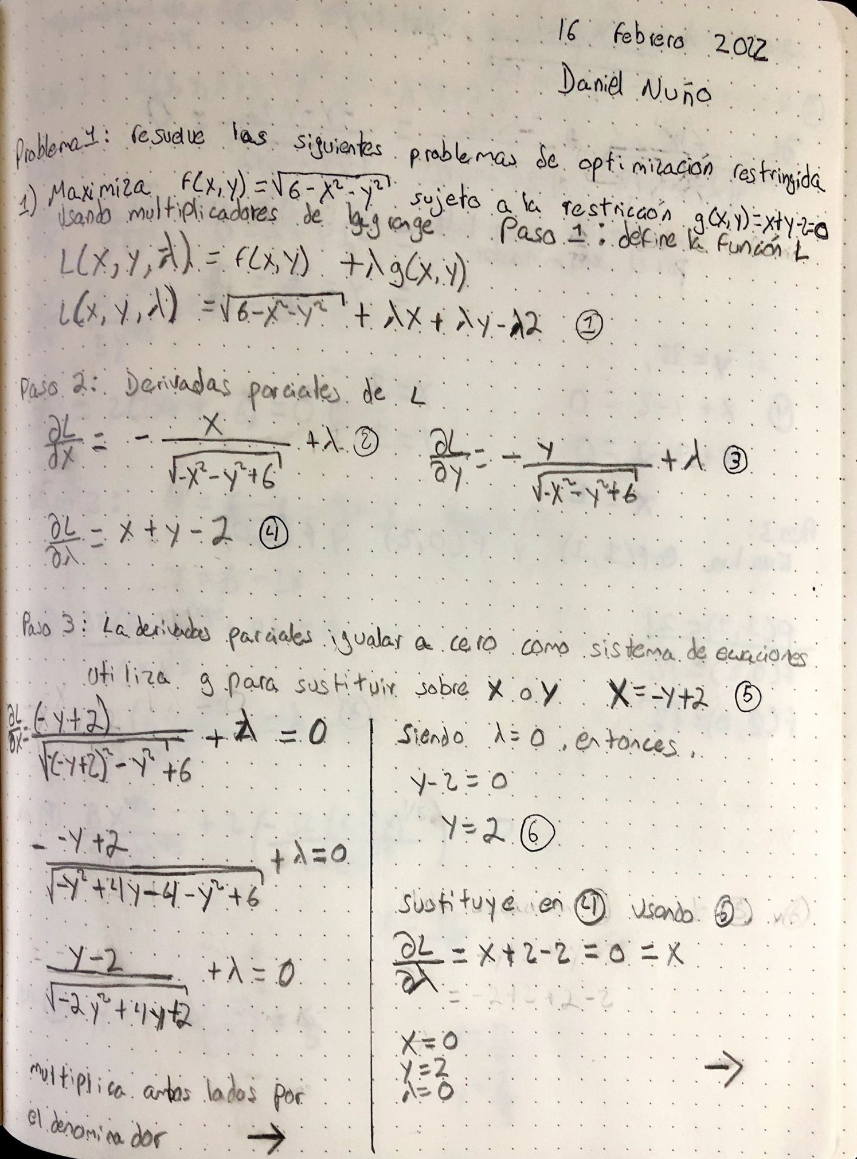 16 febrero 2022
Daniel Nuño
Problema 1: resuelve las siguientes problemas de optimización restringida
1) Maximiza f(x,y) = √(6-x²-y²) sujeto a la restricción g(x,y)=x+y-2=0
usando multiplicadores de lagrange Paso 1: define la función L
L(x, y, λ) = f(x,y) + λg(x,y)
L(x, y, λ) = √(6-x²-y²) + λx + λy - λ2 ①
Paso 2: Derivadas parciales de L
∂L/∂x = - x/√(-x²-y²+6) + λ ② ∂L/∂y = - y/√(-x²-y²+6) + λ ③
∂L/∂λ = x + y - 2 ④
Paso 3: La derivadas parciales igualar a cero como sistema de ecuaciones
utiliza g para sustituir sobre x o y x = -y+2 ⑤
∂L/∂x = (-y+2)/√((-y+2)²-y²+6) + λ = 0
- -y+2/√(-y²+4y-4-y²+6) + λ = 0
y-2/√(-2y²+4y+2) + λ = 0
multiplica ambos lados por
el denominador →
Siendo λ=0, entonces,
y-2=0
y=2 ⑥
sustituye en ④ usando ⑥
∂L/∂λ = x+2-2 = 0 = x
x=0
y=2 →
λ=0